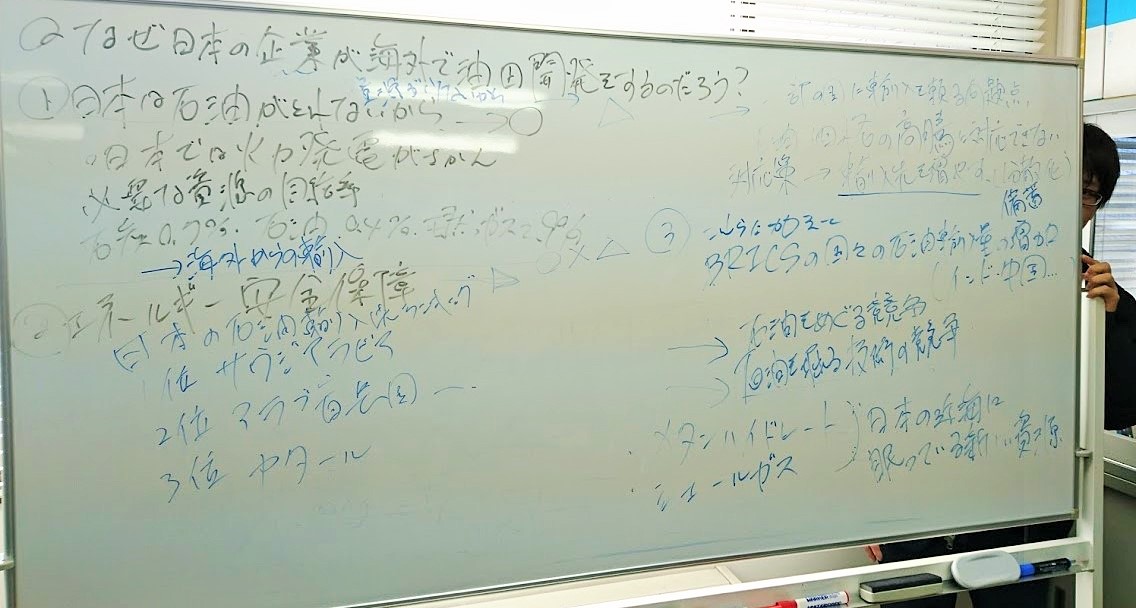 Qなぜ日本の企業が海外で油田開発をするのだろう?
① 日本は石油がとれないから →○
・日本では火力発電がさかん
必要な資源の自給率
石炭0.7% 石油0.4% 天然ガス2.9%
→海外からの輸入
② エネルギー安全保障
日本の石油輸入先ランキング
1位 サウジアラビア
2位 アラブ首長国…
3位 カタール
→ に輸入を頼る問題点
の高騰に対応できない
対応策→輸入先を増やす
備蓄
③ さらに
BRICSの国々の石油輸入量の増加
(インド・中国…)
→石油をめぐる競争
→石油を掘る技術の競争
・メタンハイドレート
・シェールガス
日本の近海に
眠っている新しい資源